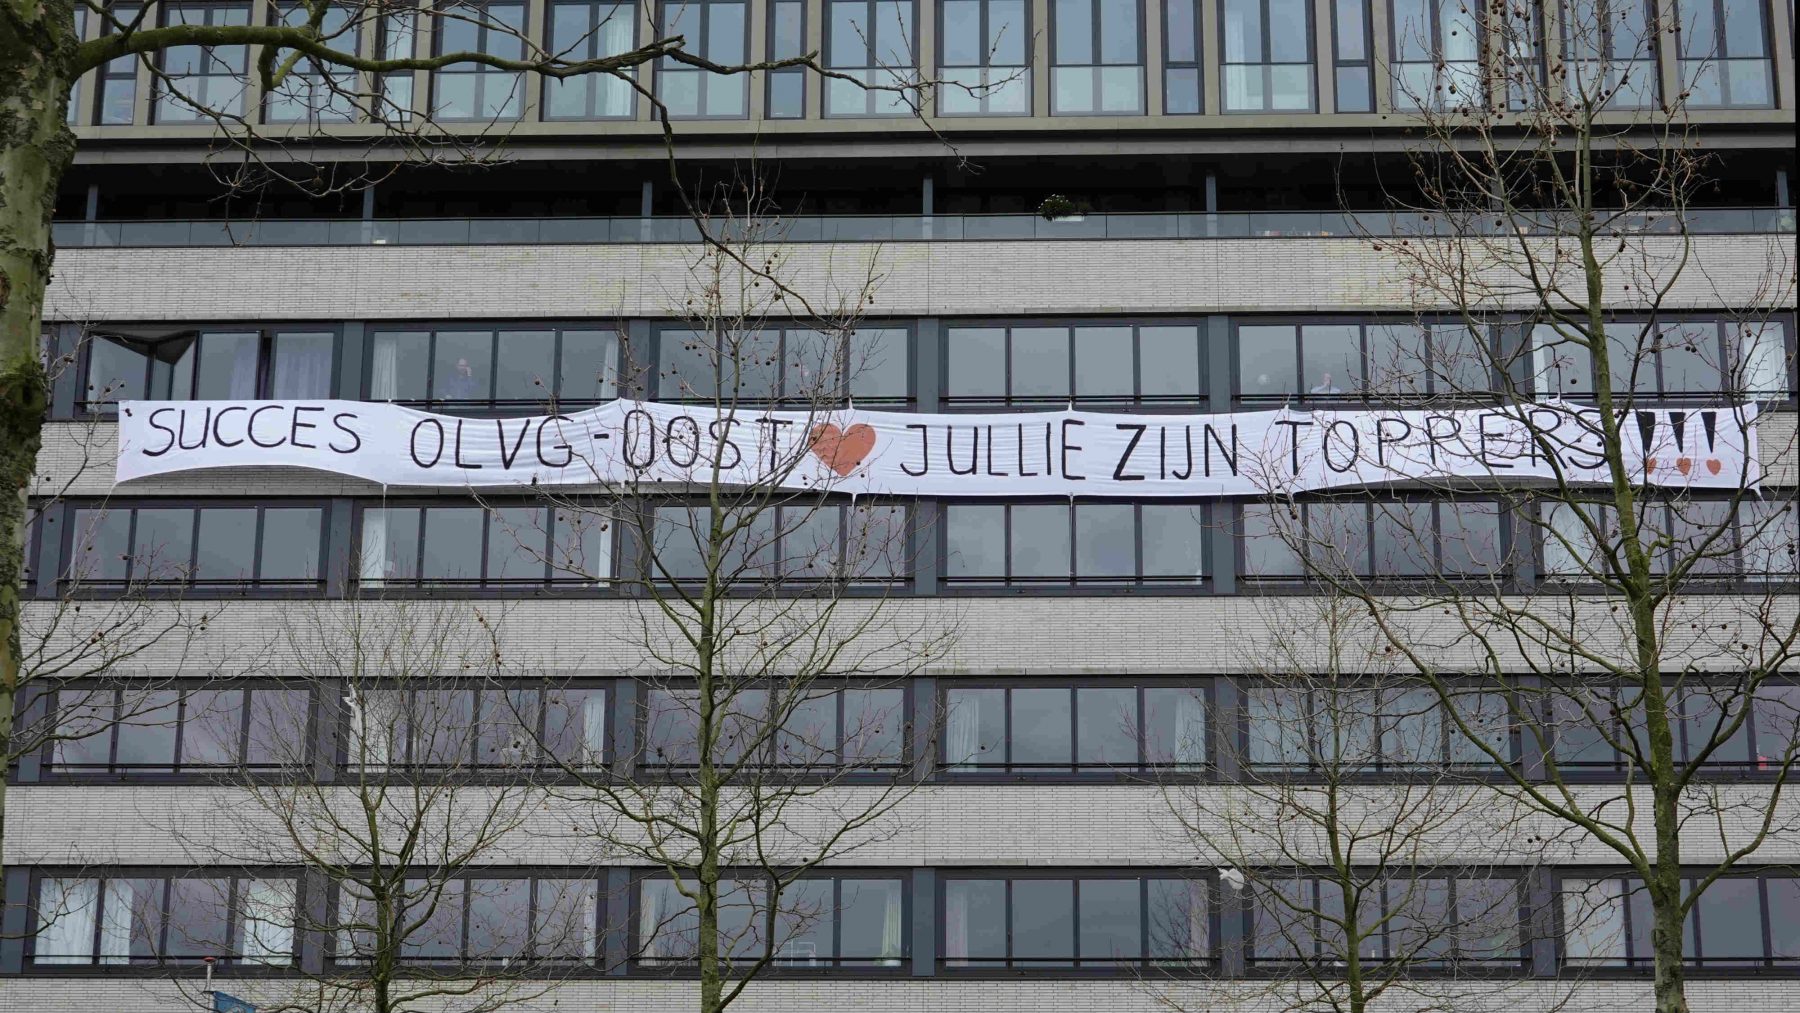 SUCCES OLVG-OOST ❤ JULLIE ZIJN TOPPERS!!!